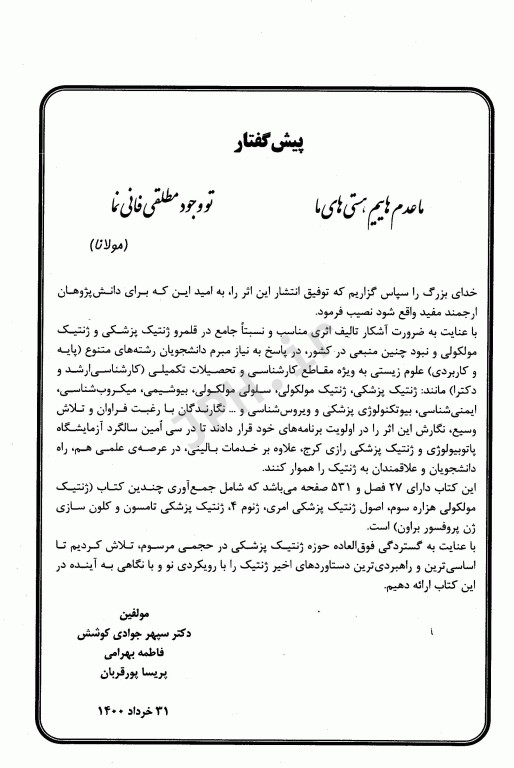 پیش گفتار
ما عدم هاییم هستی های ما تو وجود مطلقی فانی نما
(مولانا)
خدای بزرگ را سپاس گزاریم که توفیق انتشار این اثر را، به امید این که برای دانش‌پژوهان
ارجمند مفید واقع شود نصیب فرمود.
با عنایت به ضرورت آشکار تالیف اثری مناسب و نسبتاً جامع در قلمرو ژنتیک پزشکی و ژنتیک
مولکولی و نبود چنین منبعی در کشور، در پاسخ به نیاز مبرم دانشجویان رشته‌های متنوع (پایه
و کاربردی) علوم زیستی به ویژه مقاطع کارشناسی و تحصیلات تکمیلی (کارشناسی‌ارشد و
دکترا) مانند: ژنتیک پزشکی، ژنتیک مولکولی، سلولی مولکولی، بیوشیمی، میکروب‌شناسی،
ایمنی‌شناسی، بیوتکنولوژی پزشکی و ویروس‌شناسی و ... نگارندگان با رغبت فراوان و تلاش
وسیع، نگارش این اثر را در اولویت برنامه‌های خود قرار دادند تا در سی اُمین سالگرد آزمایشگاه
پاتوبیولوژی و ژنتیک پزشکی رازی کرج، علاوه بر خدمات بالینی، در عرصه‌ی علمی هم، راه
دانشجویان و علاقمندان به ژنتیک را هموار کنند.
این کتاب دارای ۲۷ فصل و ۵۳۱ صفحه می‌باشد که شامل جمع‌آوری چندین کتاب (ژنتیک
مولکولی هزاره سوم، اصول ژنتیک پزشکی امری، ژنوم ۴، ژنتیک پزشکی تامسون و کلون سازی
ژن پروفسور براون) است.
با عنایت به گستردگی فوق‌العاده حوزه ژنتیک پزشکی در حجمی مرسوم، تلاش کردیم تا
اساسی‌ترین و راهبردی‌ترین دستاوردهای اخیر ژنتیک را با رویکردی نو و با نگاهی به آینده در
این کتاب ارائه دهیم.
مولفین
دکتر سپهر جوادی کوشش
فاطمه بهرامی
پریسا پورقربان
۳۱ خرداد ۱۴۰۰